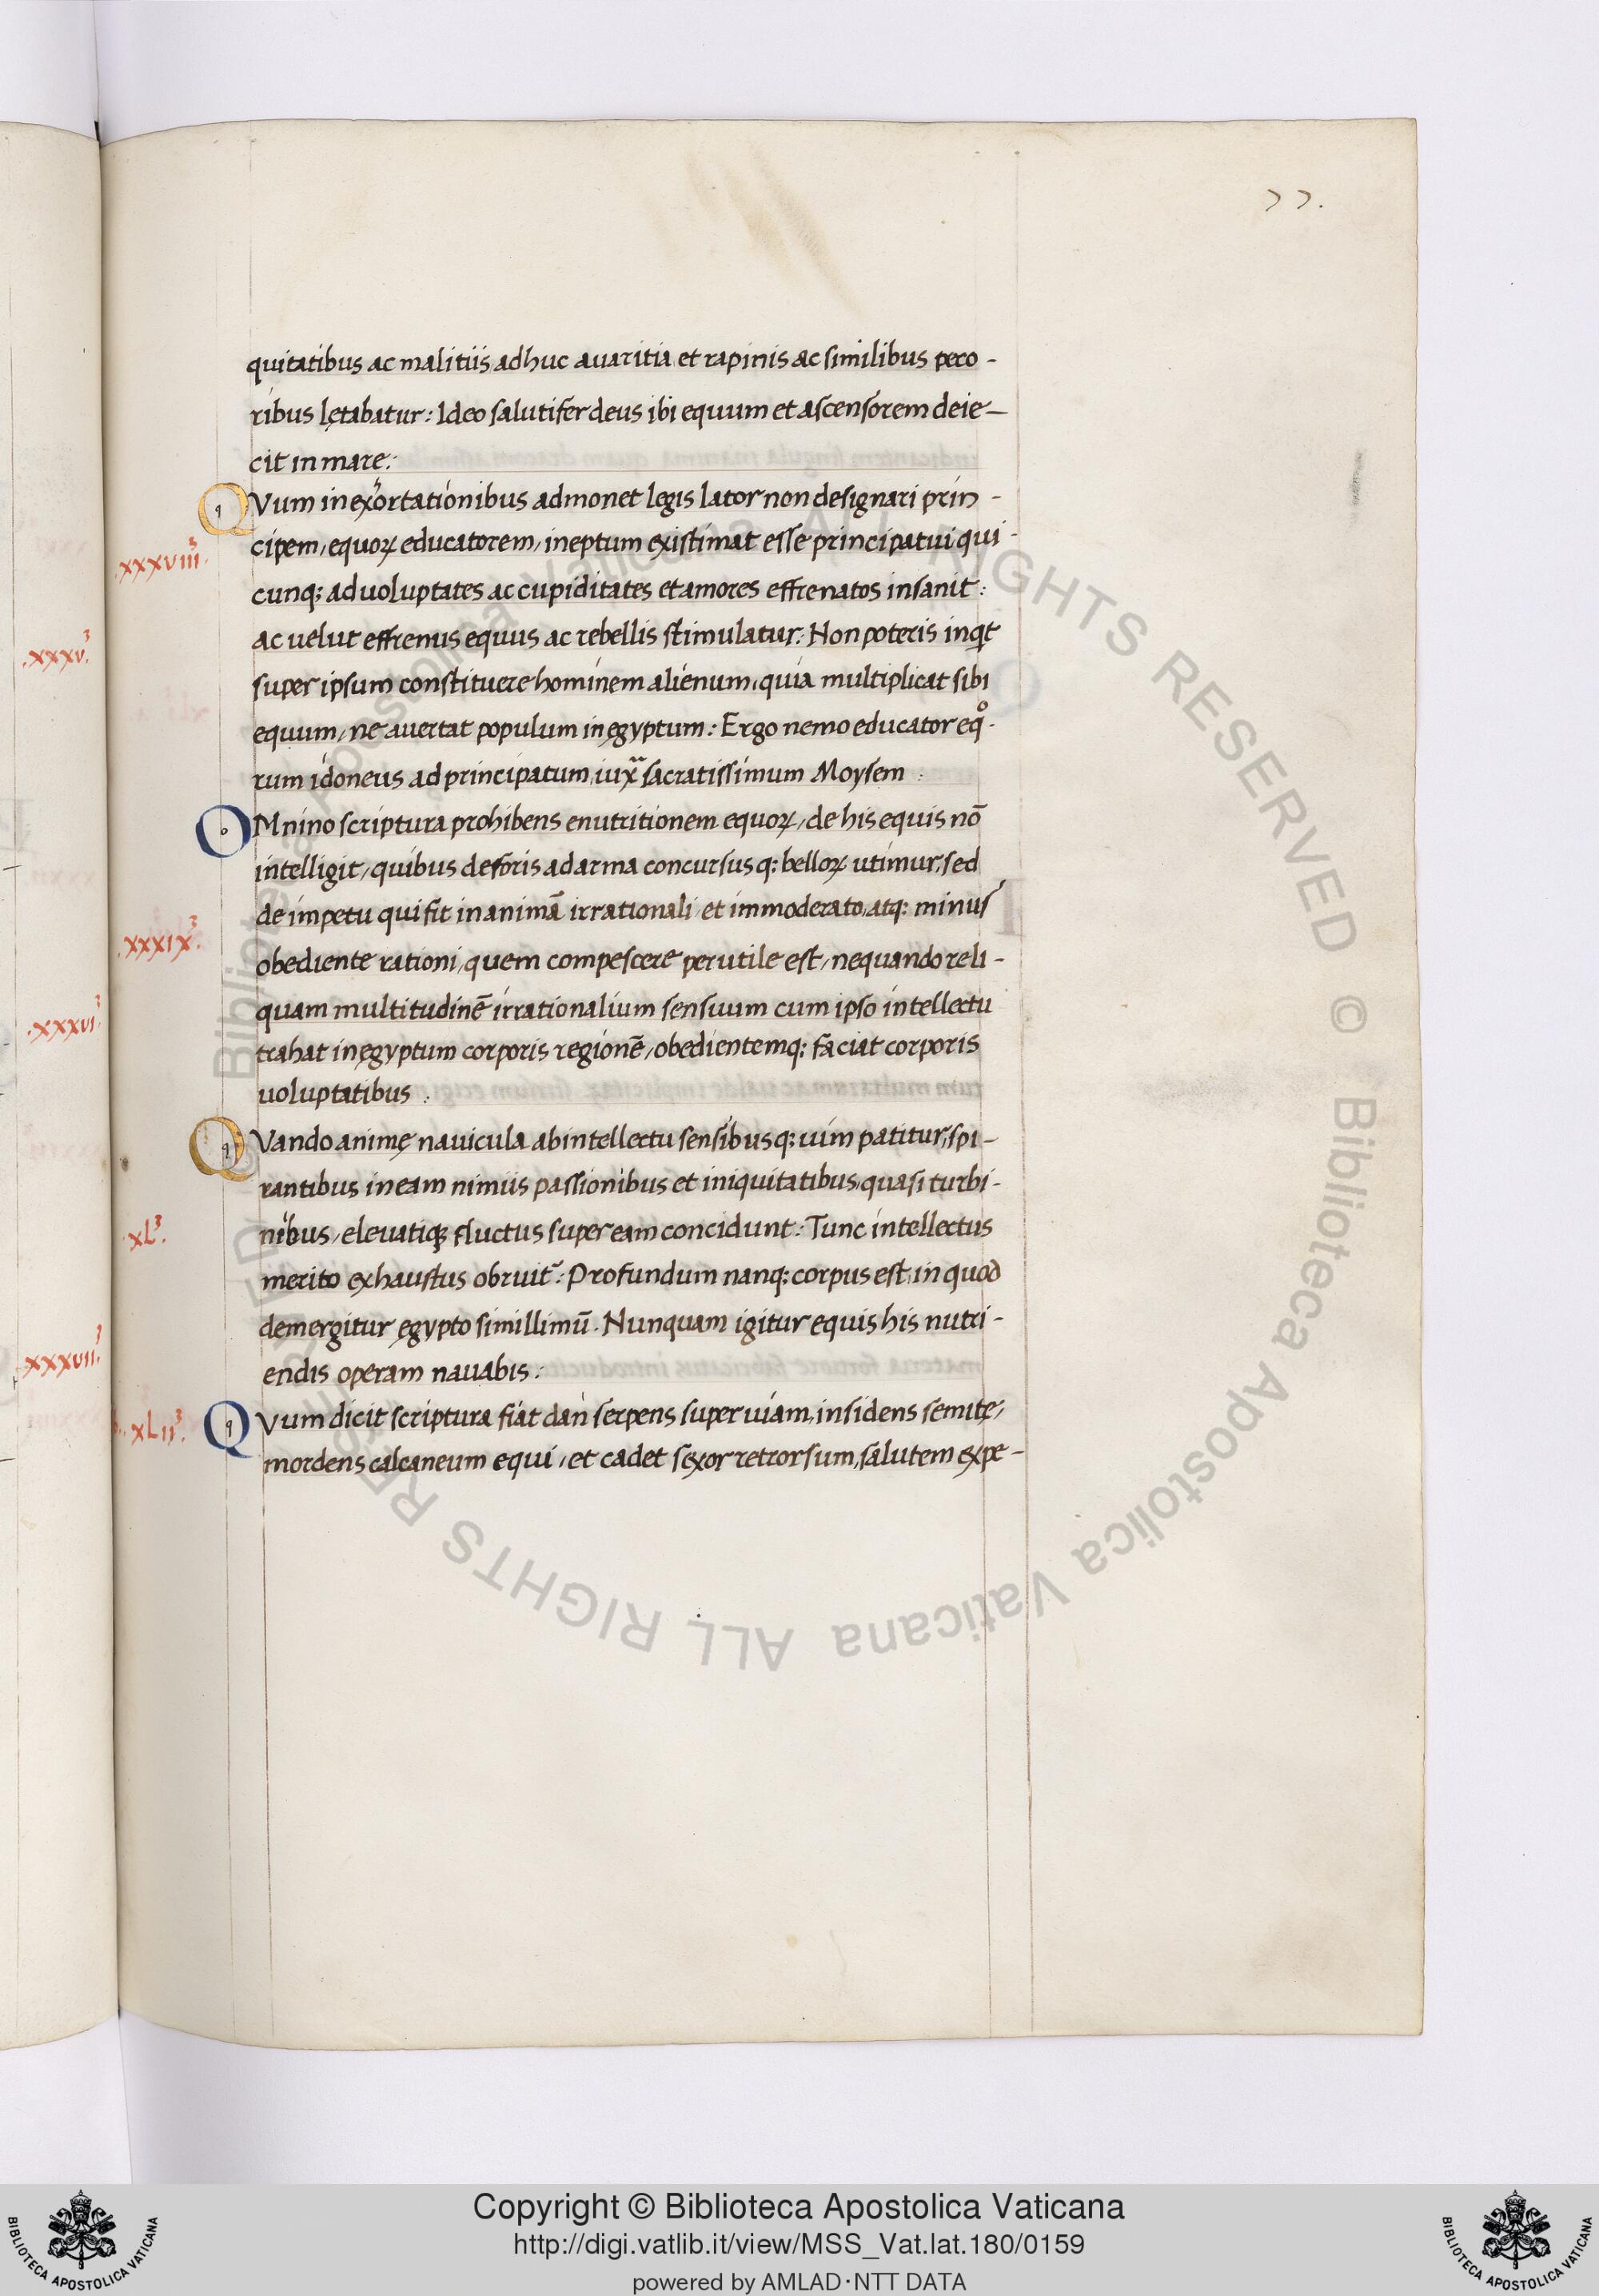 77.
quitatibus ac malitiis, adhuc avaritia et rapinis ac similibus peco-
ribus lętabatur: Ideo salutifer deus ibi equum et ascensorem deie-
cit in mare:
QVum in exortationibus admonet legis lator non designari prin-
.xxxviii.
cipem, equoꝝ educatorem, ineptum existimat esse principatui qui-
cunq; ad uoluptates ac cupiditates et amores effrenatos insanit:
ac uelut effrenus equus ac rebellis stimulatur: Non poteris inqt
.xxxv.
super ipsum constituere hominem alienum, quia multiplicat sibi
equum, ne avertat populum in ęgyptum: Ergo nemo educator eqo-
rum idoneus ad principatum, iuxa sacratissimum Moysem :
OMnino scriptura prohibens enutritionem equoꝝ, de his equis nō
intelligit, quibus deforis ad arma concursusq; belloꝝ utimur, sed
de impetu qui fit in animā irrationali, et immoderato, atq; minus
.xxxix.
obediente rationi, quem compescere perutile est, nequando reli-
quam multitudinē irrationalium sensuum cum ipso intellectu
.xxxvi.
trahat in ęgyptum corporis regionē, obedientemq; faciat corporis
uoluptatibus :
QVando animę navicula ab intellectu sensibusq; uim patitur, spi-
rantibus in eam nimiis passionibus et iniquitatibus, quasi turbi-
nibus, elevatiq; fluctus super eam concidunt: Tunc intellectus
.xL.
merito exhaustus obruit: Profundum nanq; corpus est, in quod
demergitur ęgypto simillimū. Nunquam igitur equis his nutri-
endis operam navabis:
.xxxvii.
QVum dicit scriptura fiat dan serpens super uiam, insidens semitę,
.xLii.
mordens calcaneum equi, et cadet sexor retrorsum, salutem expe-
© Biblioteca Apostolica Vaticana ALL RIGHTS RESERVED © Biblioteca Apostolica Vaticana ALL RIGHTS RESERVED
Copyright © Biblioteca Apostolica Vaticana
http://digi.vatlib.it/view/MSS_Vat.lat.180/0159
powered by AMLAD·NTT DATA
BIBLIOTECA APOSTOLICA VATICANA
BIBLIOTECA APOSTOLICA VATICANA